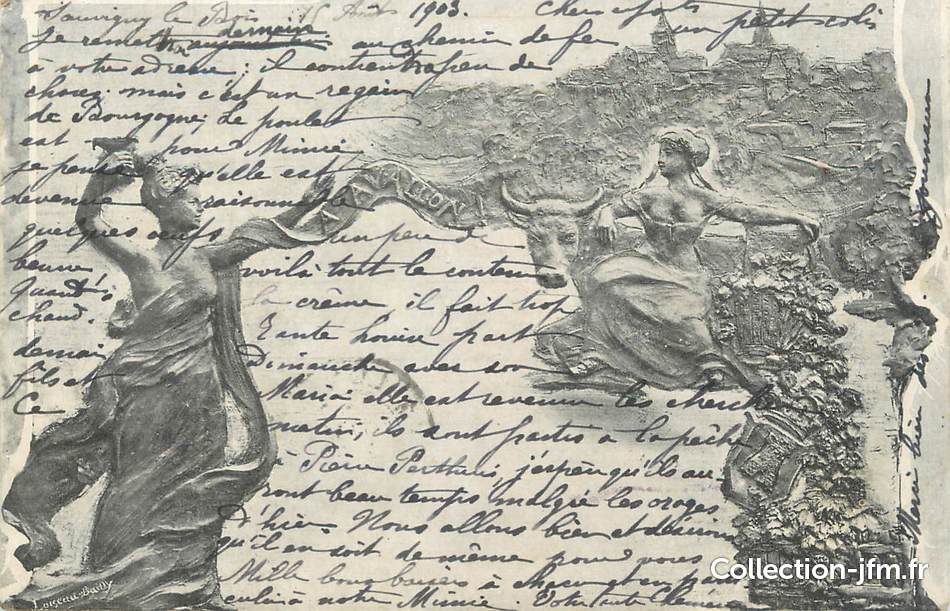 Sauvigny le Bois 15 Août 1903. Chers enfants
Je remettrai demain au chemin de fer un petit colis
à votre adresse; il contient peu de
choses mais c'est un regain
de Bourgogne; Le poulet
est pour Mimie
je pense qu'elle est
devenue raisonnable
quelques oeufs un peu de
beurre voilà tout le contenu
Quant à la crème il fait trop
chaud. Tante Louise part
demain Dimanche avec son
fils et Maria elle est revenue les chercher
Ce matin, ils sont partis à la pêche
à Pierre Perthuis, j'espère qu'ils au-
ront beau temps malgré les orages
d'hier Nous allons bien et désirons
qu'il en soit de même pour vous
Mille bons baisers à chacun et en parti-
culier à notre Mimie. Votre Tante
Merci bien
A AVALLON!
Loiseau-Bailly
Collection-jfm.fr